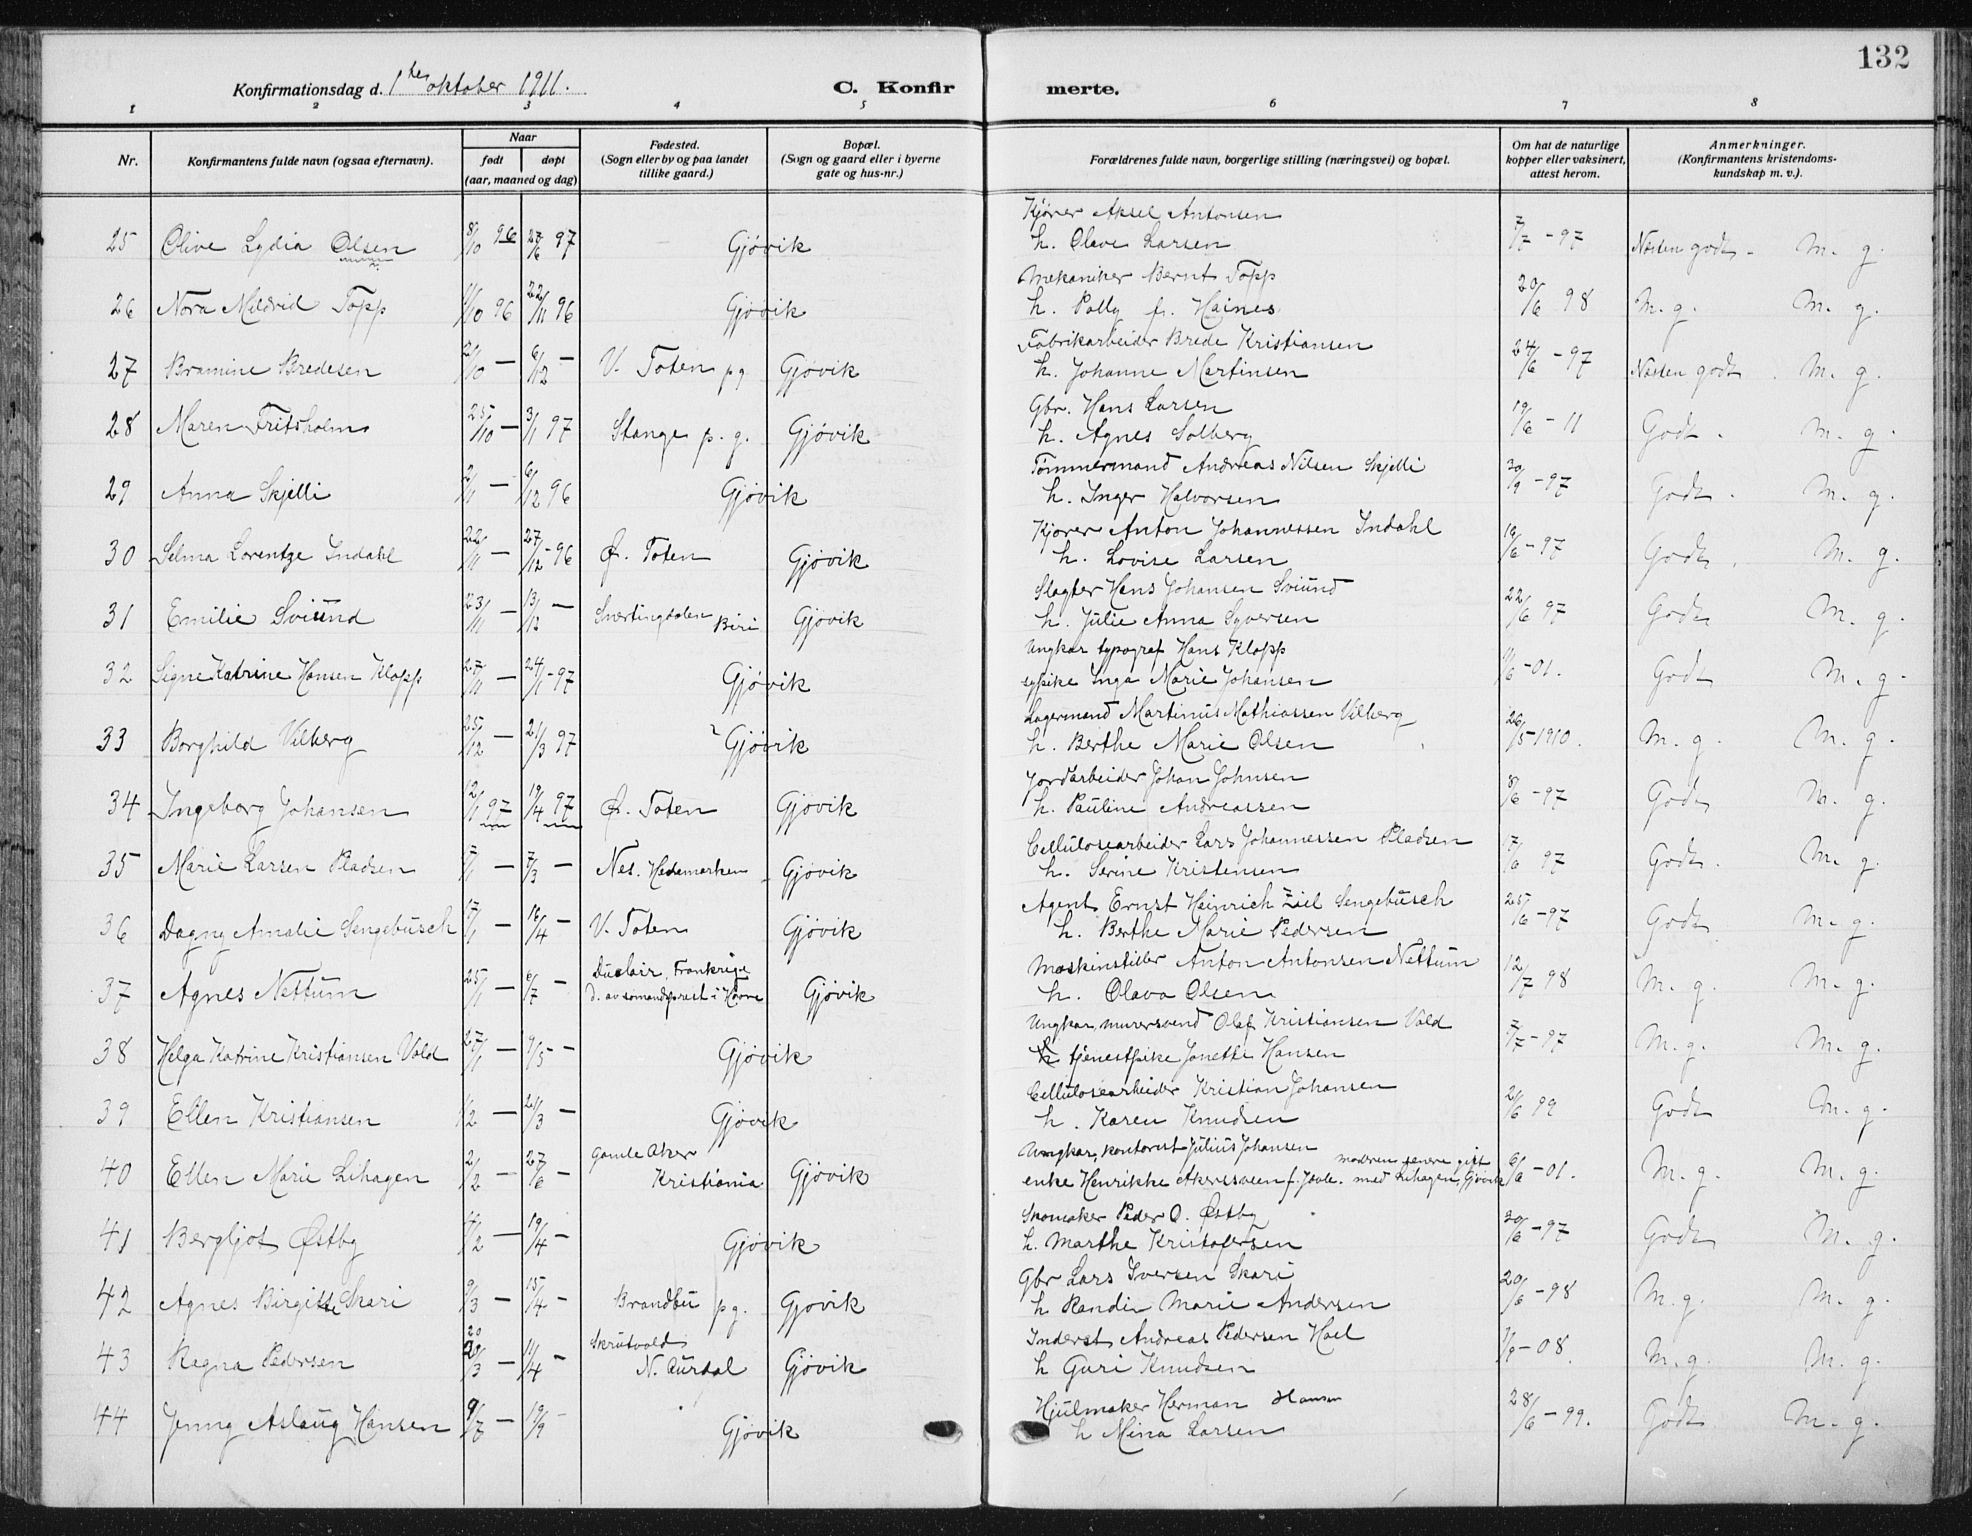 132
Konfirmationsdag d. 1ste oktober 1911. C. Konfirmerte.
1 2 3 4 5 6 7 8
Nr. Konfirmantens fulde navn (ogsaa efternavn). Naar født døpt (aar, maaned og dag) Fødested. (Sogn eller by og paa landet tillike gaard.) Bopæl. (Sogn og gaard eller i byerne gate og hus-nr.) Forældrenes fulde navn, borgerlige stilling (næringsvei) og bopæl. Om hat de naturlige kopper eller vaksinert, attest herom. Anmerkninger. (Konfirmantens kristendoms- kundskap m. v.).
25 Olive Lydia Olsen 8/10 96 27/6 97 Gjøvik Kjører Aksel Antonsen
h. Olave Larsen 7/7 - 97 Næsten godt - M. g.
26 Nora Mildrid Topp 11/10 96 22/11 96 Gjøvik Mekaniker Bernt Topp
h. Polly f. Haines 20/6 98 M. g. M. g.
27 Bramine Bredesen 21/10 — 6/12 — V. Toten pg. Gjøvik Fabrikarbeider Brede Kristiansen
h. Johanne Martinsen 24/6 - 97 Næsten godt M. g.
28 Maren Fritsholm 25/10 — 3/1 97 Stange p. g. Gjøvik Gbr. Hans Larsen
h. Agnes Solberg 19/6 - 11 Godt. M. g.
29 Anna Skjelli 2/11 — 6/12 96 Gjøvik Tømmermand Andreas Nilsen Skjelli
h. Inger Halvorsen 30/9 - 97 Godt. M. g.
30 Selma Lorentze Indahl 22/11 — 27/12 - 96 Ø. Toten Gjøvik Kjører Anton Johannessen Indahl
h. Lovise Larsen 19/6 - 97 Godt. M. g.
31 Emilie Sviund 23/11 — 13/12 — Snertingdalen Biri Gjøvik Slagter Hans Johansen Sviund
h. Julie Anna Syversen 22/6 97 Godt M. g.
32 Signe Katrine Hansen Klopp 27/11 — 24/1 - 97 Gjøvik Ungkar typograf Hans Klopp
sypike Inga Marie Johansen 11/6 - 01. Godt M. g.
33 Borghild Vilberg 25/12 — 21/3 97 Gjøvik Lagermand Martinus Mathiassen Vilberg
h. Berthe Marie Olsen 26/5 - 1910. M. g. M. g.
34 Ingeborg Johansen 12/1 97 19/4 97 Ø. Toten Gjøvik Jordarbeider Johan Johnsen
h. Pauline Andreassen 8/6 - 97 Godt M. g.
35 Marie Larsen Pladsen — 7/3 — Nes. Hedemarken Gjøvik Cellulosearbeider Lars Johannessen Pladsen
h. Serine Kristensen 17/6 97 Godt. M. g.
36 Dagny Amalie Sengebusch 17/1 — 16/4 — V. Toten Gjøvik Agent Ernst Heinrich Sengebusch
h. Berthe Marie Pedersen 25/6 - 97 Godt M. g.
37 Agnes Nettum 25/1 — 6/7 — Duclair, Frankrige
d. av sømandsprest i Havre Gjøvik Maskinstiller Anton Antonsen Nettum
h. Olava Olsen 12/7 98 M. g. M. g.
38 Helga Katrine Kristiansen Vold 27/1 — 9/5 - Gjøvik Ungkar, murersvend Olaf Kristiansen Vold
tjenestpike Jonette Hansen 7/7 - 97 M. g. M. g.
39 Ellen Kristiansen 1/2 — 21/3 — Gjøvik Cellulosearbeider Kristian Johansen
h. Karen Knudsen 21/6 99 Godt M. g.
40 Ellen Marie Lihagen 2/2 — 27/6 — Gamle Aker
Kristiania Gjøvik Ungkar, kontorist Julius Johansen moderen senere gift
enke Henrikke Akersveen f. med Lihagen, Gjøvik 6/6 - 01. M. g. M. g.
41 Bergljot Østby /2 — 19/4 — Gjøvik Skomaker Peder O. Østby
h. Marthe Kristofersen 30/6 - 97 Godt M. g.
42 Agnes Birgitte Skari 9/3 — 15/4 - Brandbu pg. Gjøvik Gbr Lars Iversen Skari
h Randi Marie Andersen 20/6 - 98 M. g. M. g.
43 Ragna Pedersen 20/3 — 11/4 - Skrutvold
N. Aurdal Gjøvik Inderst Andreas Pedersen Hoel
h Guri Knudsen 1/9 - 08. M. g. M. g.
44 Jenny Aslaug Hansen 9/7 — 19/9 - Gjøvik Hjulmaker Herman Hansen
h Mina Larsen 28/6 - 99. Godt M. g.